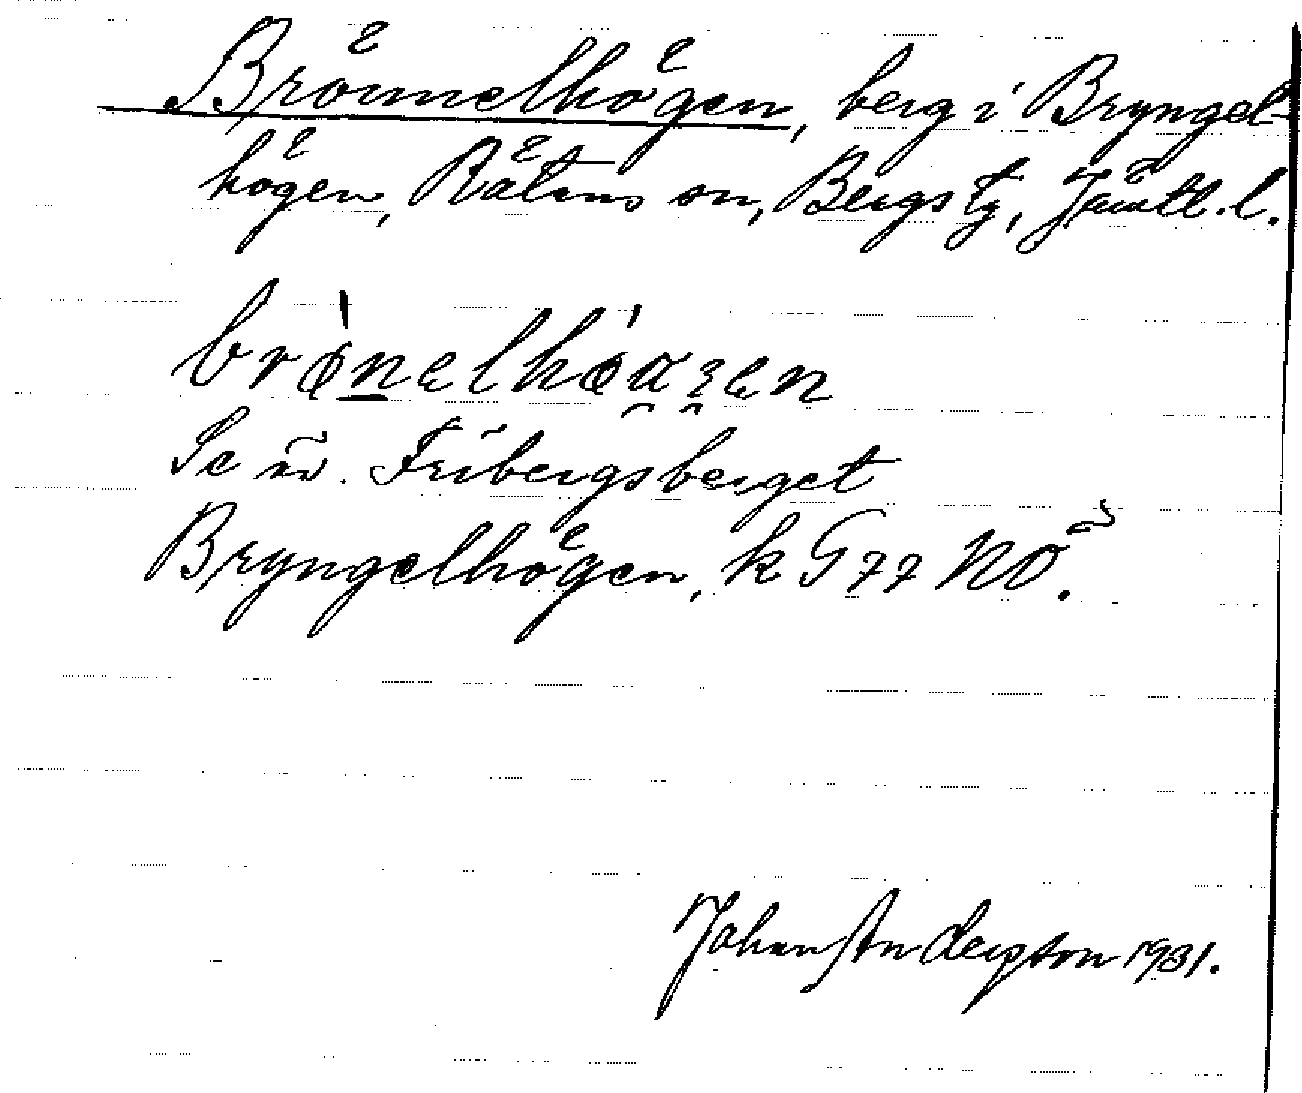 Brönnelhögen, berg i Bryngel-
högen, Rätans sn, Bergs tg, Jämtl. l.
Se äv. Fribergsberget
Bryngelhögen, k G 77 NÖ.
Johan Anderzton 1931.